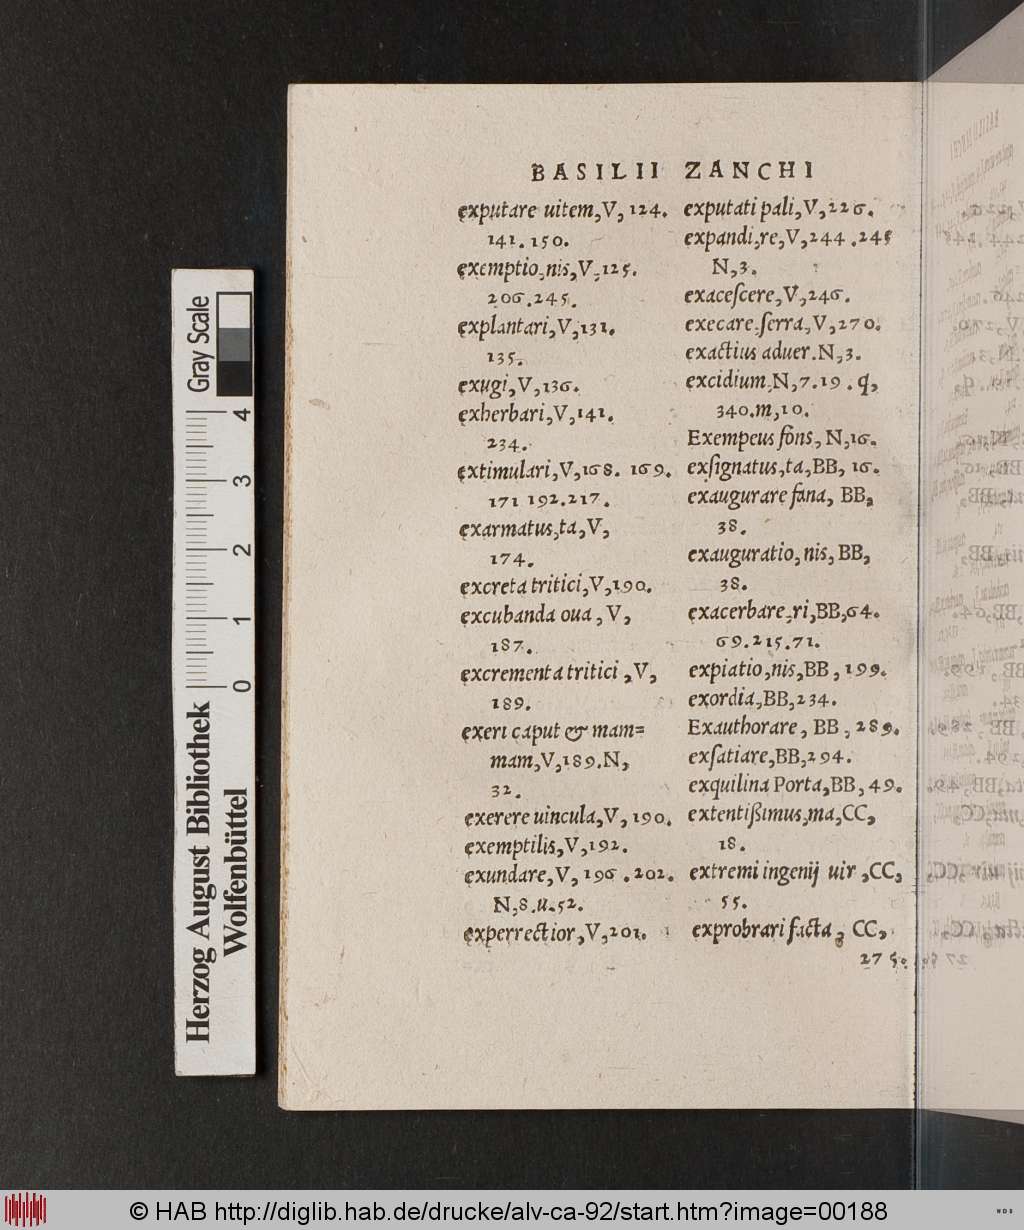 BASILII ZANCHI
exputare uitem, V, 124.
141. 150.
exemptio, nis, V, 125.
206. 245.
explantari, V, 131.
135.
exugi, V, 136.
exherbari, V, 141.
234.
extimulari, V, 168. 169.
171 192. 217.
exarmatus, ta, V,
174.
excreta tritici, V, 190.
excubanda oua, V,
187.
excrementa tritici, V,
189.
exeri caput & mam=
mam, V, 189. N,
32.
exerere uincula, V, 190.
exemptilis, V, 192.
exundare, V, 196. 202.
N, 8. u. 52.
experrectior, V, 201.
exputati pali, V, 226.
expandi, re, V, 244. 245
N, 3.
exacescere, V, 246.
execare serra, V, 270.
exactius aduer. N, 3.
excidium N, 7. 19. q,
340. m, 10.
Exempeus fons, N, 16.
exsignatus, ta, BB, 16.
exaugurare fana, BB,
38.
exauguratio, nis, BB,
38.
exacerbare, ri, BB, 64.
69. 215. 71.
expiatio, nis, BB, 199.
exordia, BB, 234.
Exauthorare, BB, 289.
exsatiare, BB, 294.
exquilina Porta, BB, 49.
extentißimus, ma, CC,
18.
extremi ingenij uir, CC,
55.
exprobrari facta, CC,
275.
Gray Scale
4
3
2
1
0
Herzog August Bibliothek
Wolfenbüttel
© HAB http://diglib.hab.de/drucke/alv-ca-92/start.htm?image=00188